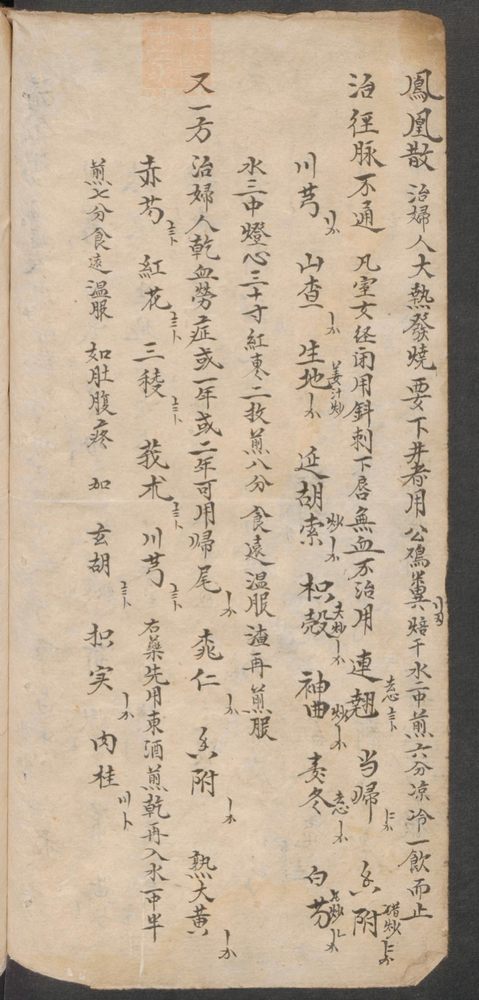 鳳凰散 治婦人大熱發燒要下井者用 公鴉糞焙干水一中煎六分凉冷一飲而止
治徑脉不通 凡室女经闭用針刺下唇無血不治用 連翹去心 当帰 香附醋炒
川芎 山查 生地姜汁炒 延胡索炒 枳殼夫炒 神曲炒 麦冬去心 白芍
水三中燈心三十寸紅棗二枚煎八分食遠温服渣再煎服
又一方 治婦人乾血勞症或一年或二年可用帰尾 桃仁 香附 熟大黄
赤芍 紅花 三稜 莪朮 川芎 右藥先用東酒煎乾再入水一中半
煎七分食遠温服 如肚腹疼 加 玄胡 枳实 肉桂